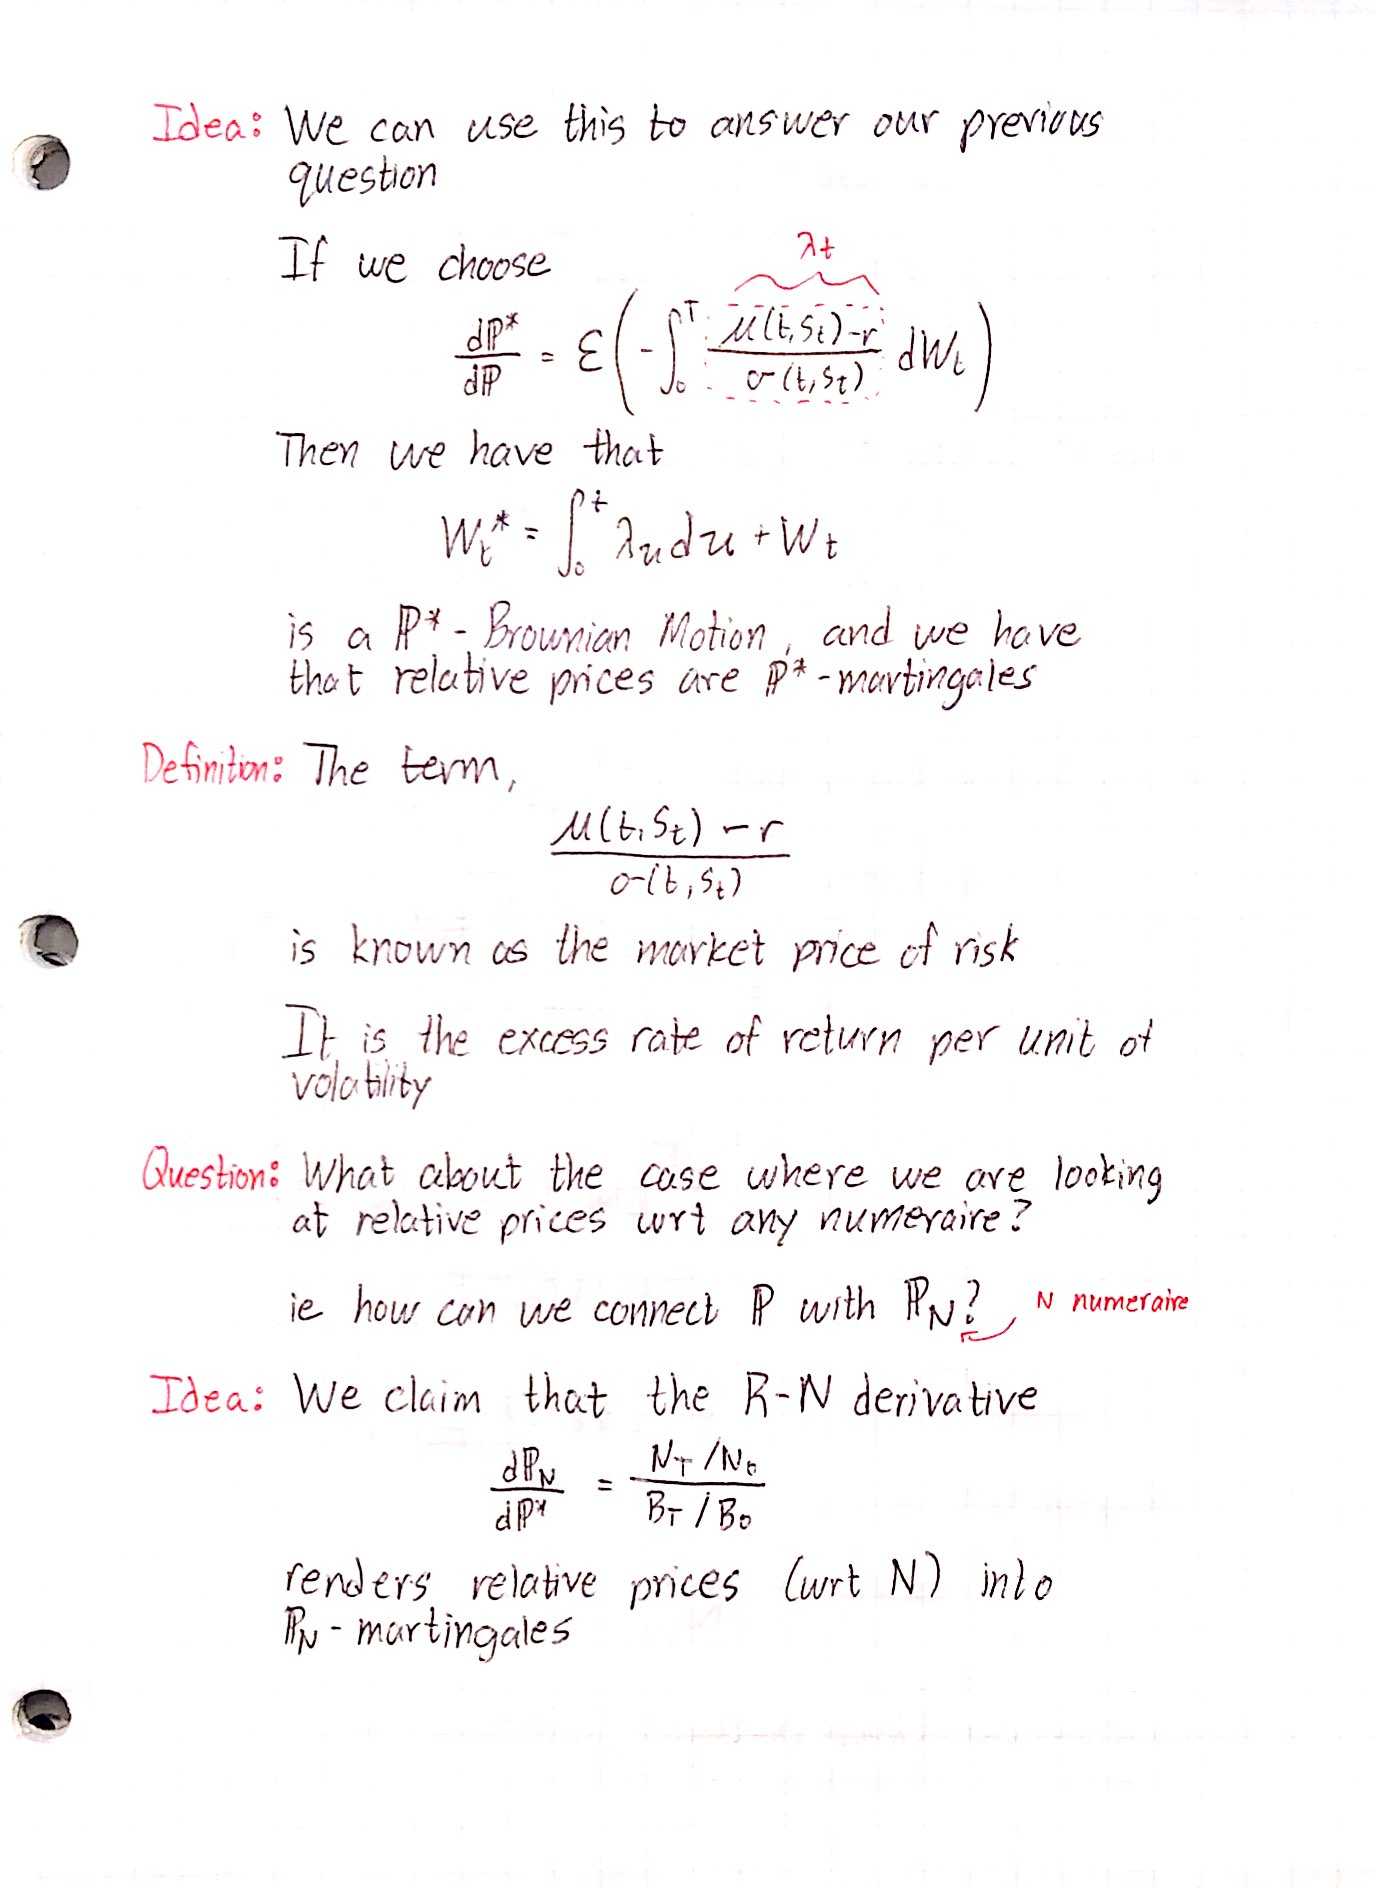 Idea: We can use this to answer our previous
question
If we choose
λt
dℙ*/dℙ = ℰ(-∫₀ᵀ (μ(t,St)-r)/(σ(t,St)) dWt)
Then we have that
Wt* = ∫₀ᵗ λu du + Wt
is a ℙ* - Brownian Motion, and we have
that relative prices are ℙ* - martingales
Definition: The term,
(μ(t,St) - r)/(σ(t,St))
is known as the market price of risk
It is the excess rate of return per unit of
volatility
Question: What about the case where we are looking
at relative prices wrt any numeraire?
ie how can we connect ℙ with ℙN? N numeraire
Idea: We claim that the R-N derivative
dℙN/dℙ* = (NT/N0)/(BT/B0)
renders relative prices (wrt N) into
ℙN - martingales